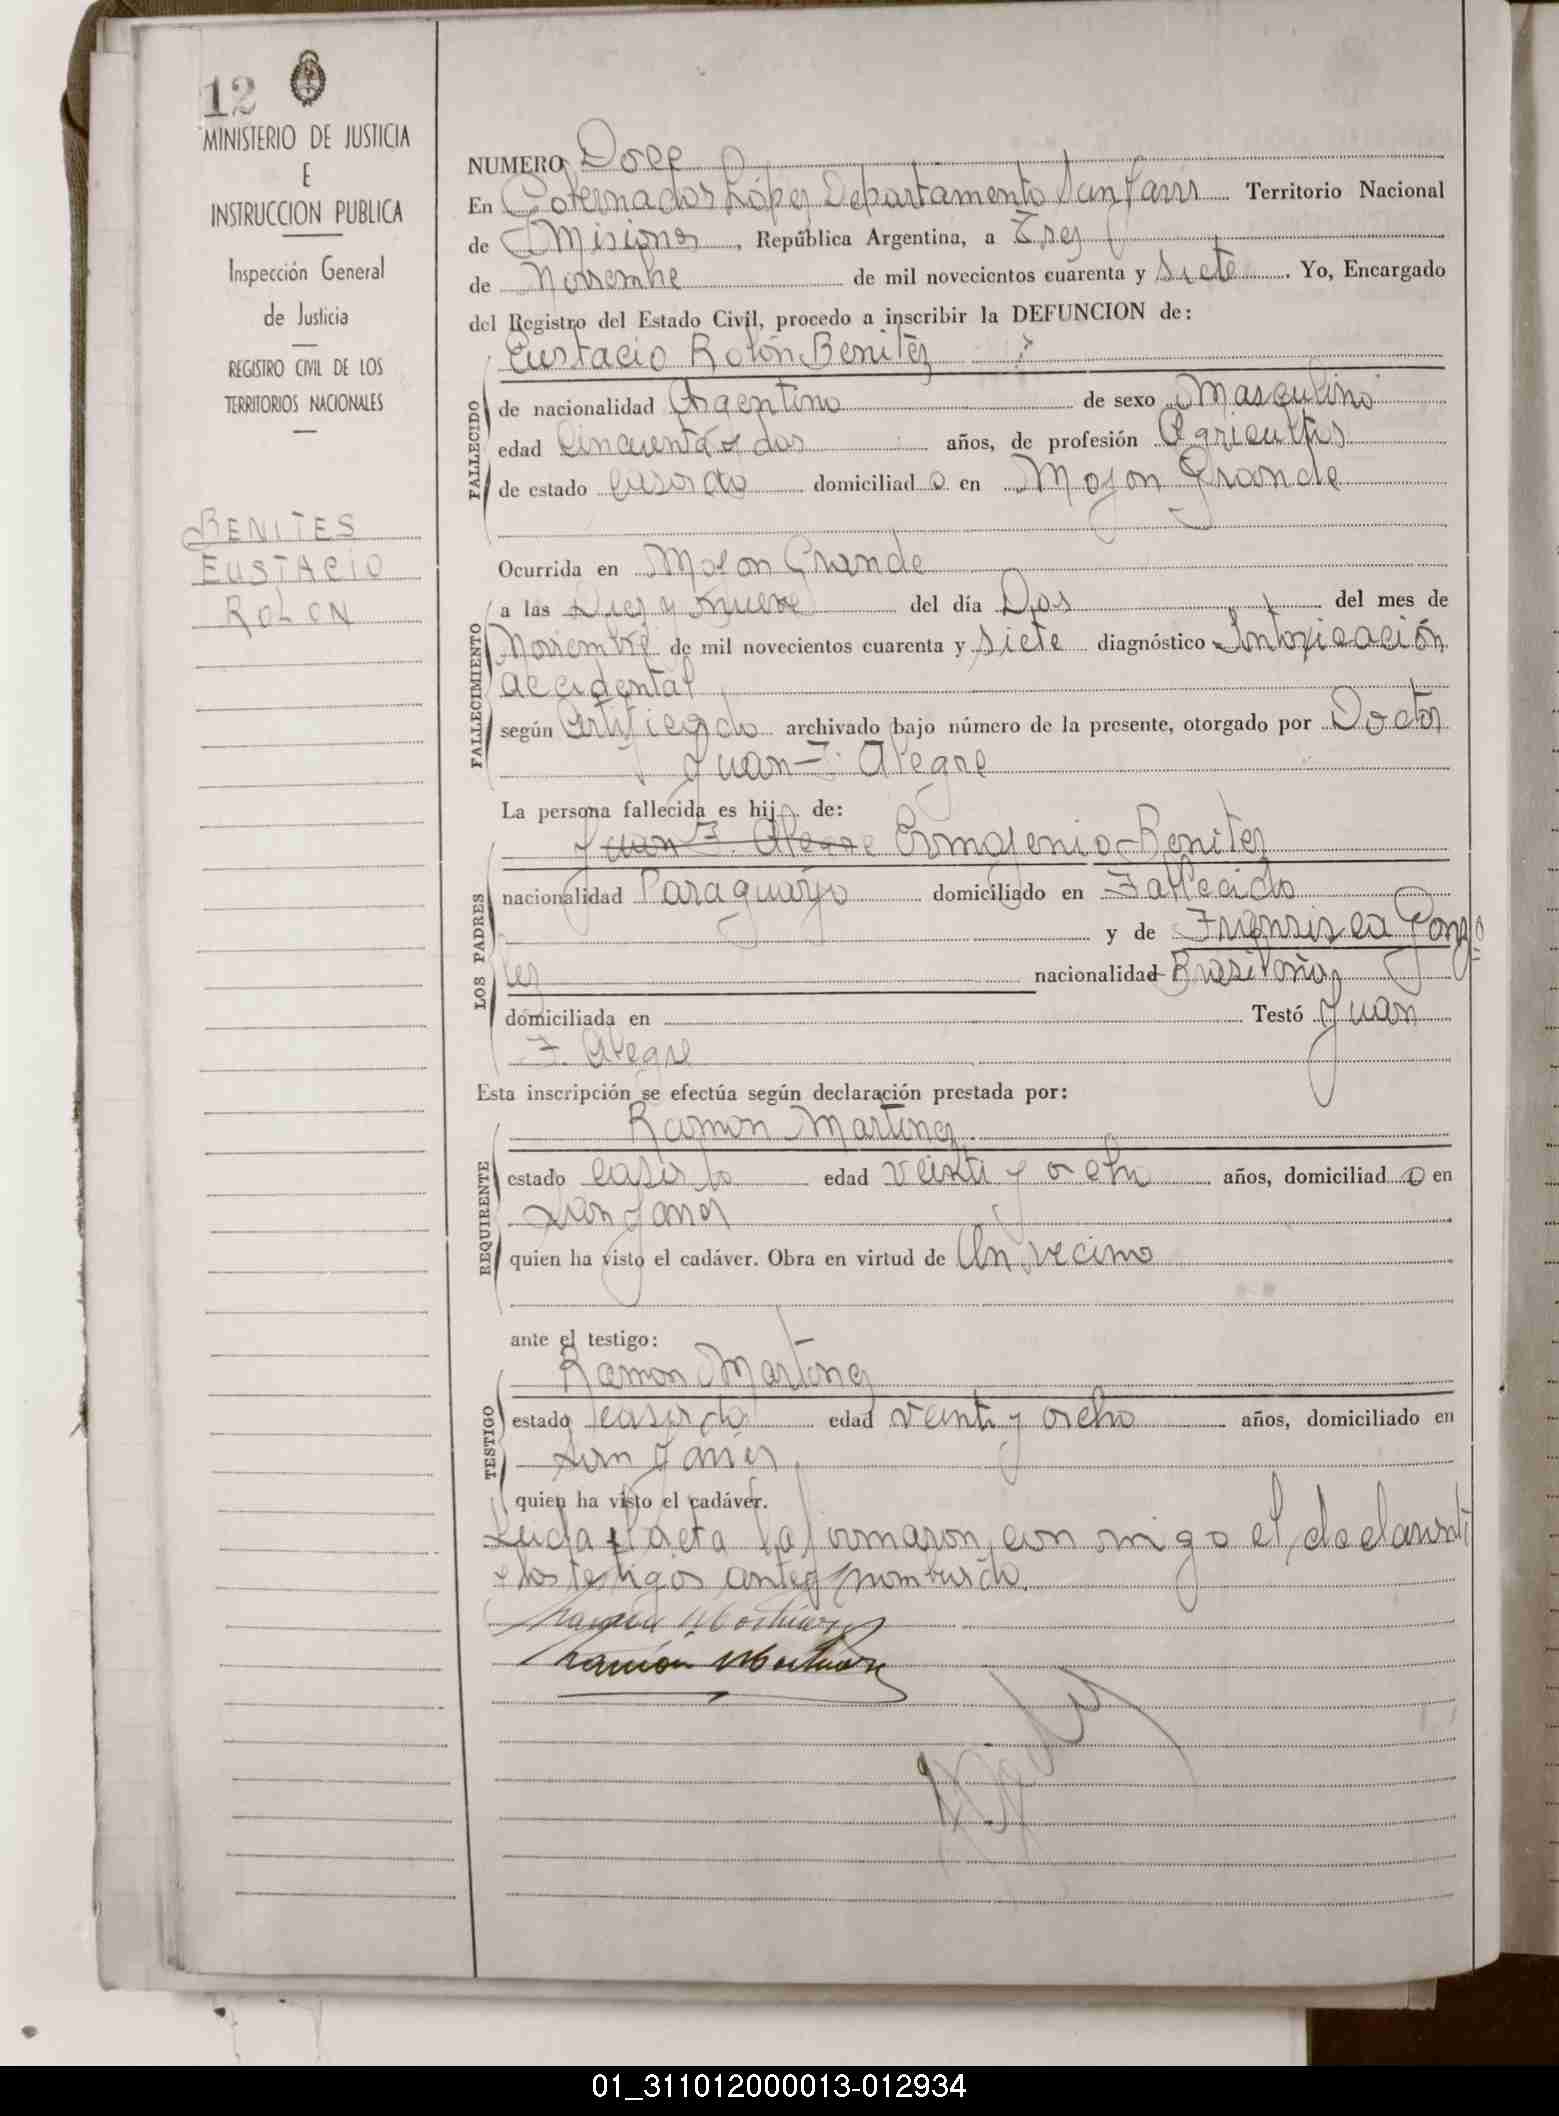 12
MINISTERIO DE JUSTICIA
E
INSTRUCCION PUBLICA
Inspección General
de Justicia
REGISTRO CIVIL DE LOS
TERRITORIOS NACIONALES
BENITES
EUSTACIO
ROLON
NUMERO Doce
En Gobernador López Departamento San Javier Territorio Nacional
de Misiones, República Argentina, a Tres
de Noviembre de mil novecientos cuarenta y siete. Yo, Encargado
del Registro del Estado Civil, procedo a inscribir la DEFUNCION de:
Eustacio Rolón Benitez
FALLECIDO
de nacionalidad Argentino de sexo Masculino
edad Cincuenta y dos años, de profesión Agricultor
de estado Casado domiciliado en Mojon Grande
Ocurrida en Mojon Grande
FALLECIMIENTO
a las Diez y nueve del día Dos del mes de
Noviembre de mil novecientos cuarenta y siete diagnóstico Intoxicación
accidental
según Certificado archivado bajo número de la presente, otorgado por Doctor
Juan F. Alegre
La persona fallecida es hijo de:
LOS PADRES
Juan F. Alegre Ermogenio Benitez
nacionalidad Paraguayo domiciliado en Fallecido
y de Fransisca Gonza
lez nacionalidad Brasileña
domiciliada en Testó Juan
F. Alegre
Esta inscripción se efectúa según declaración prestada por:
REQUIRENTE
Ramon Martinez
estado casado edad veinti y ocho años, domiciliado en
San Javier
quien ha visto el cadáver. Obra en virtud de Un vecino
ante el testigo:
TESTIGO
Ramon Martinez
estado casado edad veinti y ocho años, domiciliado en
San Javier
quien ha visto el cadáver.
Leida el acta la firmaron con migo el declarante
y los testigos antes nombrado.
Ramón Martinez
Ramón Martinez
01_311012000013-012934